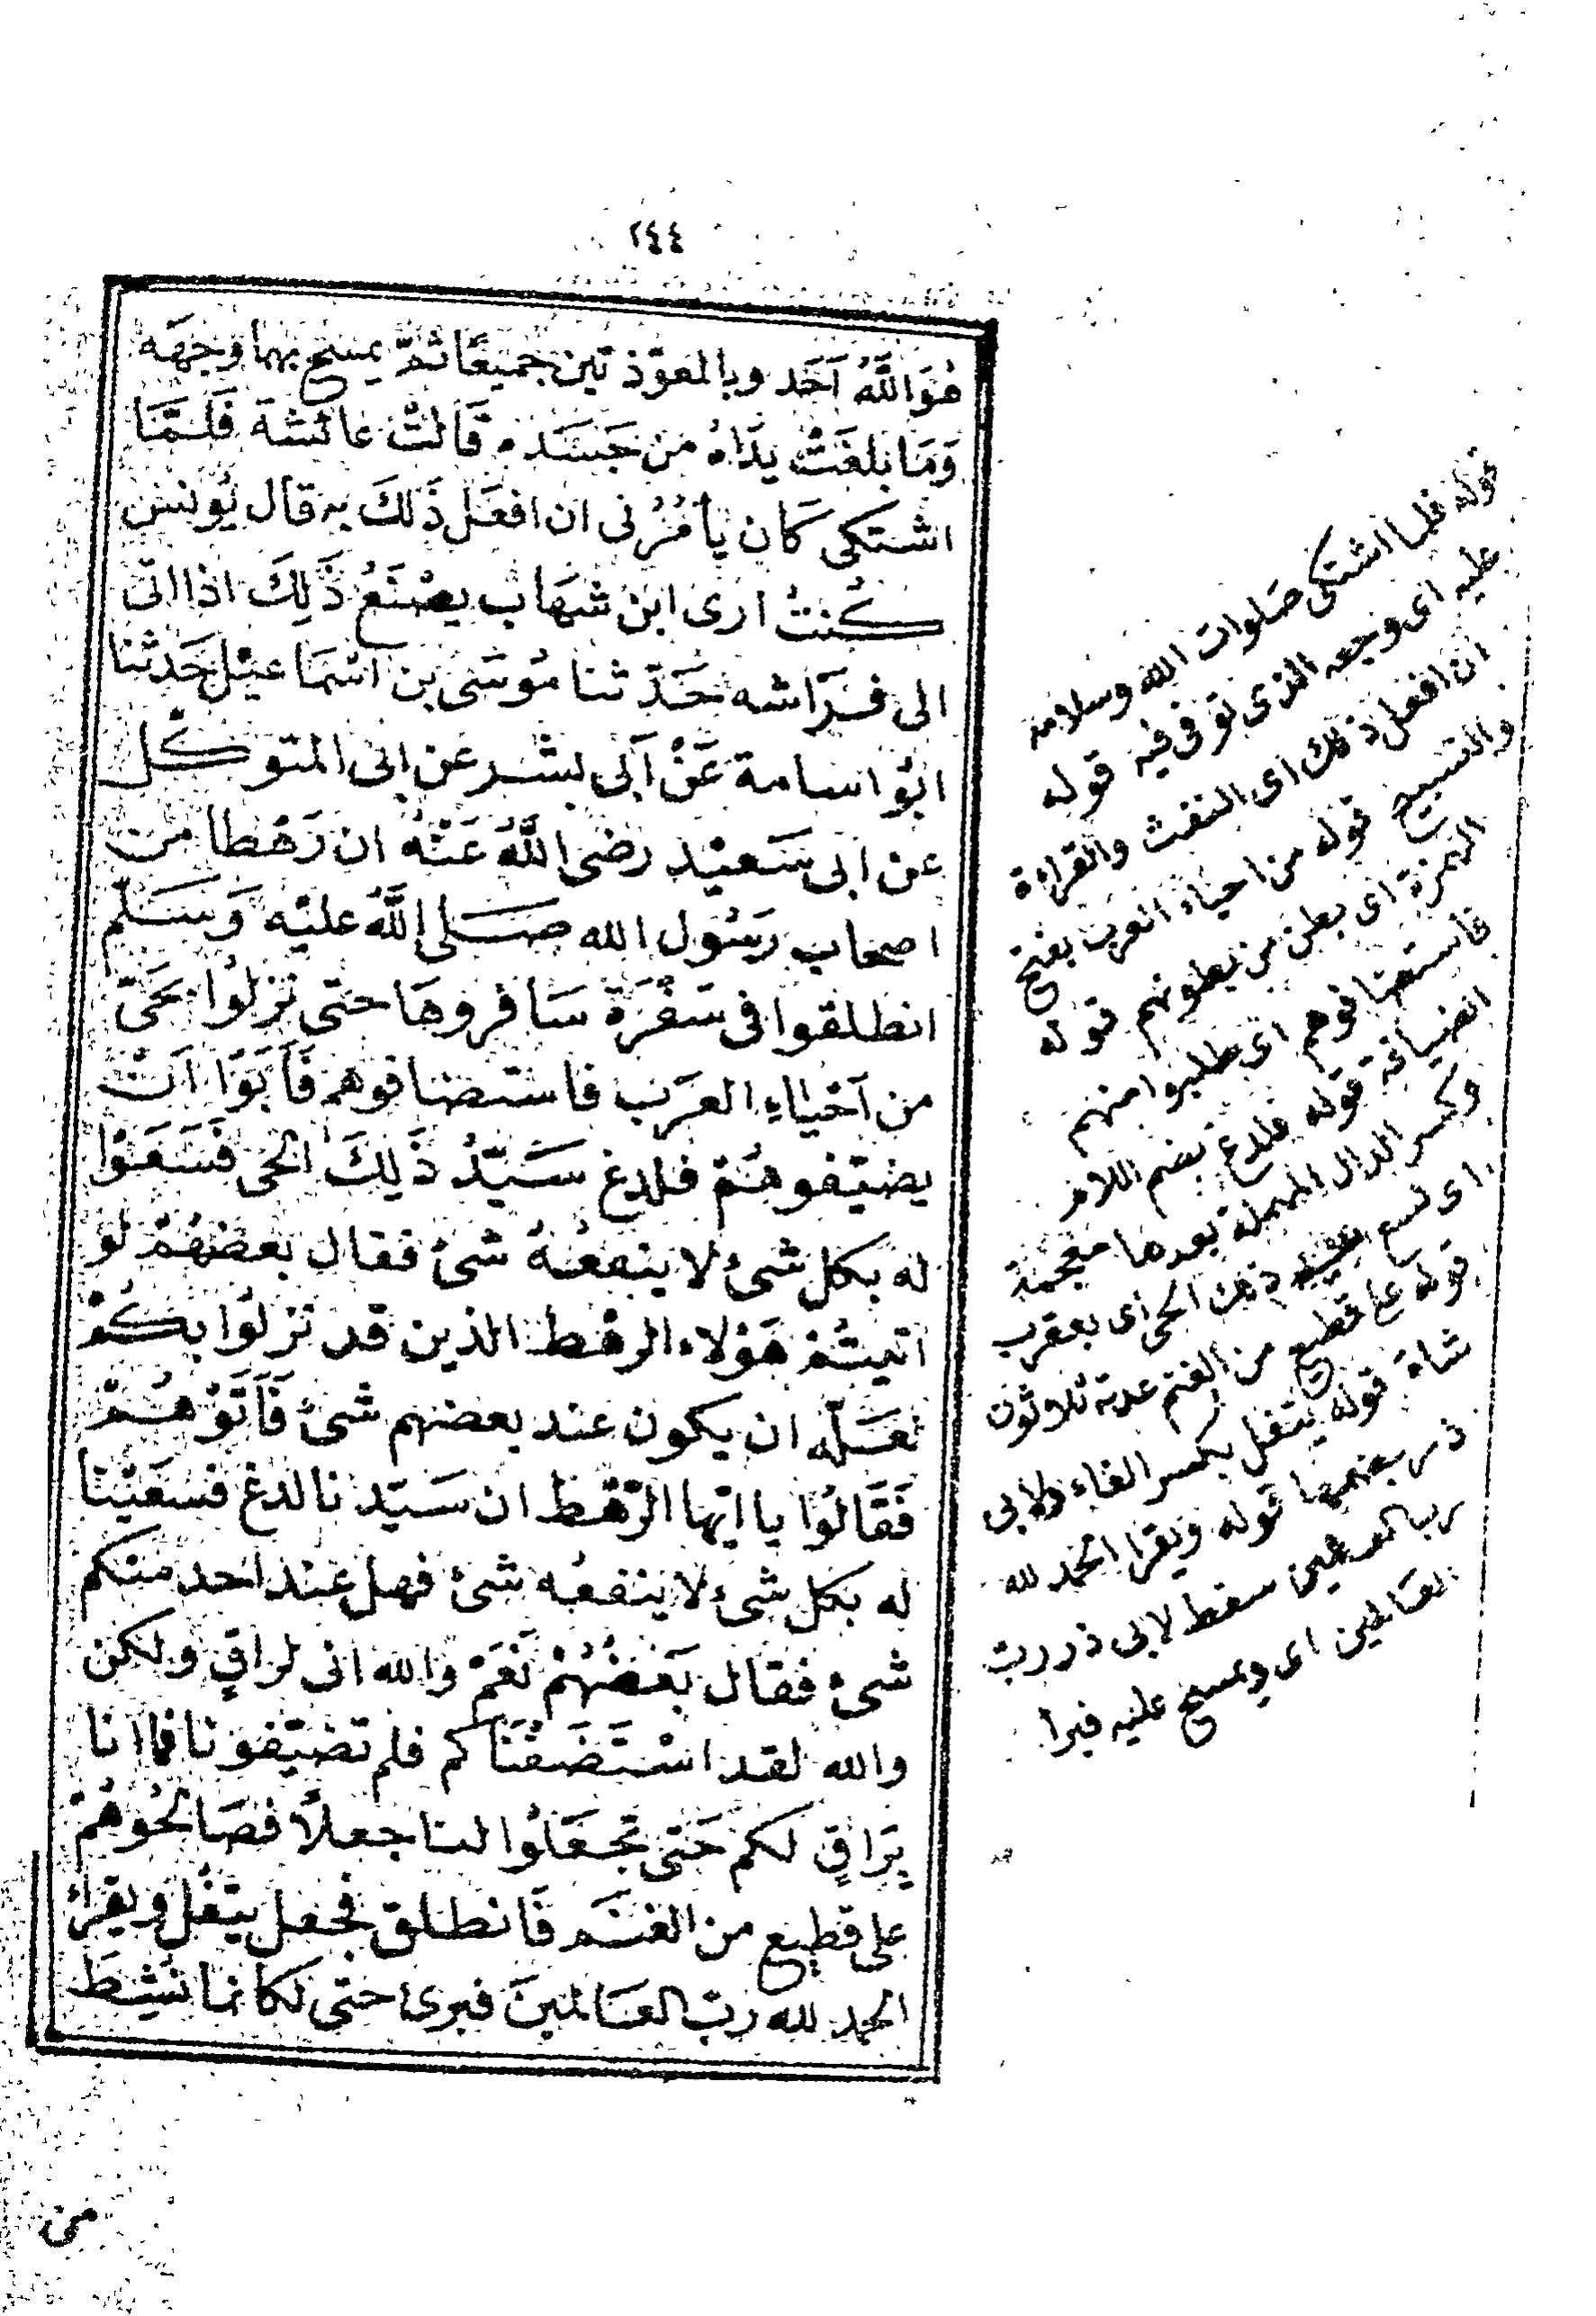 ٢٤٤
هُوَ اللَّهُ اَحَد وبالمعوّذتين جميعًا ثمَّ يمسح بهما وجهَه
وَمَا بلغَتْ يدَاهُ من جَسَده قَالتْ عائشة فَلَمَّا
اشتكى كَان يأمُرُنى ان افعَل ذَلكَ به قال يُونس
كُنتُ ارى ابن شهَاب يصْنَعُ ذَلِكَ اذا اتى
الى فرَاشه حَدّثنا مُوسَى بن اسْمَاعيْل حَدثنا
ابُو اسامة عَنْ اَبى بشر عن ابى المتوكّل
عن ابى سَعيْد رضى اللَّهُ عَنْهُ ان رَهْطا من
اصحاب رَسُول الله صَلى اللَّهُ عليْه وَسَلّم
انطلقوا فى سَفْرَة سَافروهَا حتى نزلُوا بحَىّ
من اَحْيَاءِ العرَب فاستضافوهم فَاَبَوَا اَنْ
يضيّفوهُمْ فلدغ سَيّدُ ذَلِكَ الحى فَسَعَوْا
له بكل شىء لا ينفعُهُ شىْ فقال بعضهُمْ لو
اتيتُمْ هَؤلاء الرهْط الذين قد نزلُوا بكُمْ
لعَلّه ان يكون عند بعضهم شىْ فَاَتَوْهُمْ
فَقَالُوا يا ايّها الرّهْط ان سَيّدنا لدغ فسَعَيْنا
له بكل شىء لا ينفعُه شىْ فهل عند احد منكم
شىْ فقال بَعْضُهُمْ نَعَمْ والله انى لراقٍ ولكن
والله لقد اسْتَضَفْنَاكم فلم تضيّفونا فما انا
بِرَاقٍ لكم حَتى تجعَلُوا لنا جعلاً فصَالحُوهُمْ
على قطيع من الغنَم فَانطلق فجعل يتفُل ويقرأ
الحمد لله ربّ العَالمينَ فبرئ حتى لكانما نُشِطَ
من
قوله فلما اشتكى صَلوات الله وسلامه
عليه اى وجعه الذى توفى فيه قوله
ان افعل ذلك اى النفث والقراءة
والتسبيح قوله من احياء العرب بفتح
الهمزة اى بطن من بطونهم قوله
فاستضافوهم اى طلبوا منهم
الضيافة قوله فلدغ بضم اللام
وكسر الدال المهملة بعدها معجمة
اى لسع ذلك الحى اى بعقرب
قوله على قطيع من الغنم عدته ثلاثون
شاة قوله يتفل بكسر الفاء ولابى
ذر بضمها قوله ويقرا الحمد لله
رب العالمين سقط لابى ذر رب
العَالمين اى ويمسح عليه فبرأ